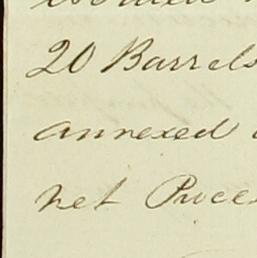 20 Barrels
annexed
net Procee